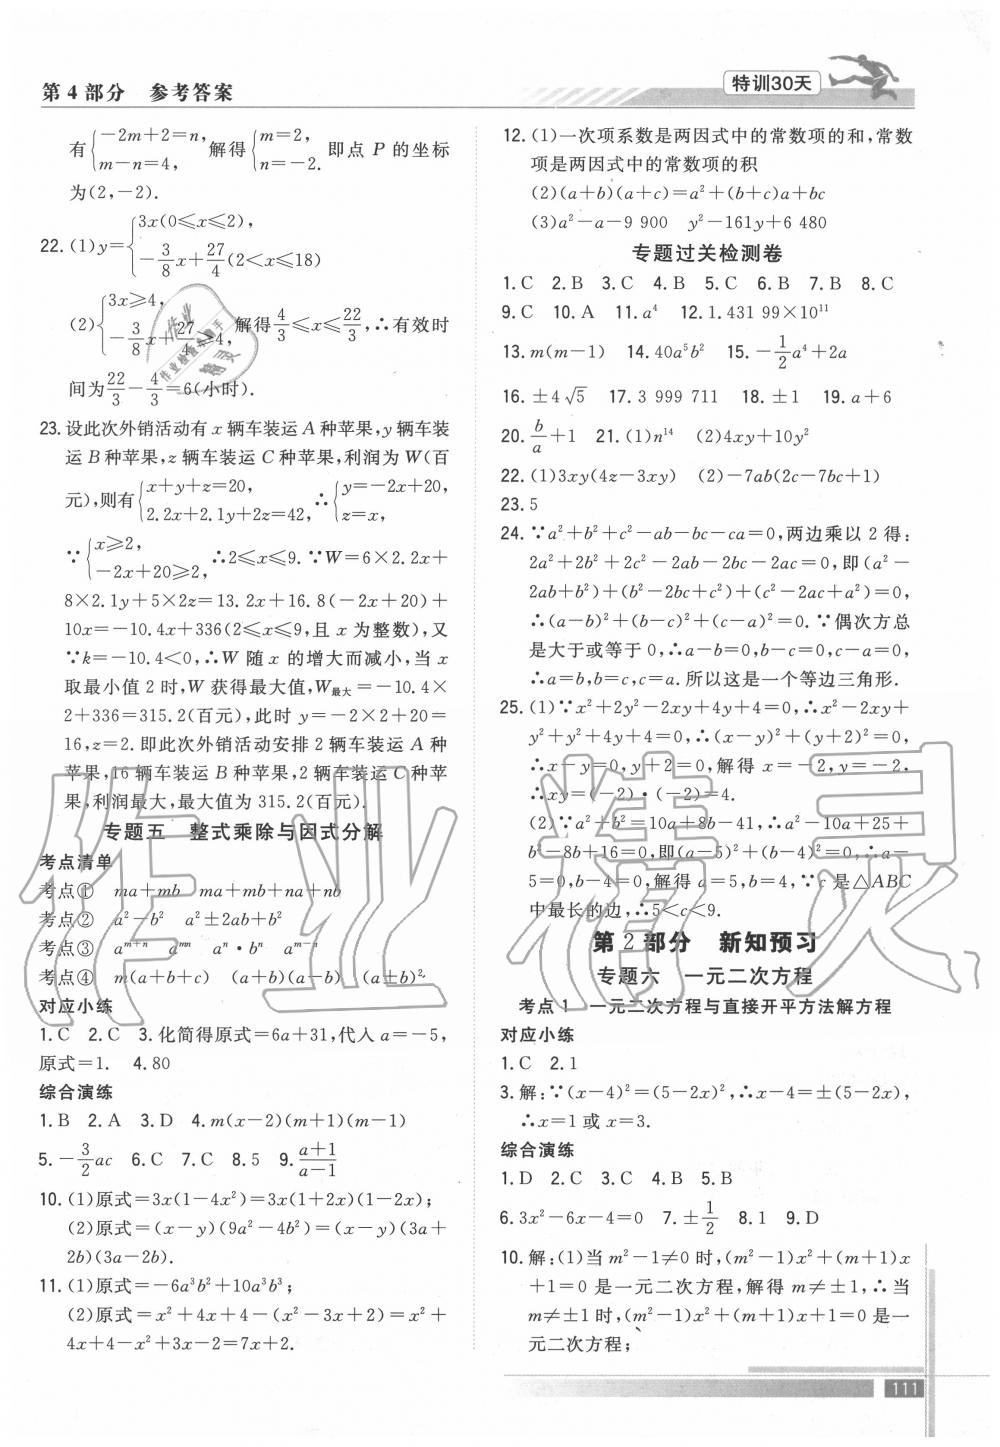 第4部分 参考答案
特训30天
有{-2m+2=n, m-n=4, 解得{m=2, n=-2. 即点 P 的坐标
为(2,-2).
22. (1)y={3x(0⩽x⩽2), -3/8x+27/4(2<x⩽18)
(2){3x⩾4, -3/8x+27/4⩾4, 解得4/3⩽x⩽22/3,∴有效时
间为22/3-4/3=6(小时).
23. 设此次外销活动有 x 辆车装运 A 种苹果,y 辆车装
运 B 种苹果,z 辆车装运 C 种苹果,利润为 W(百
元),则有{x+y+z=20, 2.2x+2.1y+2z=42, ∴{y=-2x+20, z=x,
∵{x⩾2, -2x+20⩾2, ∴2⩽x⩽9.∵W=6×2.2x+
8×2.1y+5×2z=13.2x+16.8(-2x+20)+
10x=-10.4x+336(2⩽x⩽9,且 x 为整数),又
∵k=-10.4<0,∴W 随 x 的增大而减小,当 x
取最小值 2 时,W 获得最大值,W最大=-10.4×
2+336=315.2(百元),此时 y=-2×2+20=
16,z=2.即此次外销活动安排 2 辆车装运 A 种
苹果,16 辆车装运 B 种苹果,2 辆车装运 C 种苹
果,利润最大,最大值为 315.2(百元).
专题五 整式乘除与因式分解
考点清单
考点① ma+mb ma+mb+na+nb
考点② a²-b² a²±2ab+b²
考点③ aᵐ⁺ⁿ aᵐⁿ aⁿ·bⁿ aᵐ⁻ⁿ
考点④ m(a+b+c) (a+b)(a-b) (a±b)²
对应小练
1. C 2. C 3. 化简得原式=6a+31,代入 a=-5,
原式=1. 4. 80
综合演练
1. B 2. A 3. D 4. m(x-2)(m+1)(m-1)
5. -3/2ac 6. C 7. C 8. 5 9. (a+1)/(a-1)
10. (1)原式=3x(1-4x²)=3x(1+2x)(1-2x);
(2)原式=(x-y)(9a²-4b²)=(x-y)(3a+
2b)(3a-2b).
11. (1)原式=-6a³b²+10a³b³;
(2)原式=x²+4x+4-(x²-3x+2)=x²+
4x+4-x²+3x-2=7x+2.
12. (1)一次项系数是两因式中的常数项的和,常数
项是两因式中的常数项的积
(2)(a+b)(a+c)=a²+(b+c)a+bc
(3)a²-a-9 900 y²-161y+6 480
专题过关检测卷
1. C 2. B 3. C 4. B 5. C 6. B 7. B 8. C
9. C 10. A 11. a⁴ 12. 1.431 99×10¹¹
13. m(m-1) 14. 40a⁵b² 15. -1/2a⁴+2a
16. ±4√5 17. 3 999 711 18. ±1 19. a+6
20. b/a+1 21. (1)n¹⁴ (2)4xy+10y²
22. (1)3xy(4z-3xy) (2)-7ab(2c-7bc+1)
23. 5
24. ∵a²+b²+c²-ab-bc-ca=0,两边乘以 2 得:
2a²+2b²+2c²-2ab-2bc-2ac=0,即(a²-
2ab+b²)+(b²-2bc+c²)+(c²-2ac+a²)=0,
∴(a-b)²+(b-c)²+(c-a)²=0.∵偶次方总
是大于或等于 0,∴a-b=0,b-c=0,c-a=0,
∴a=b,b=c,c=a.所以这是一个等边三角形.
25. (1)∵x²+2y²-2xy+4y+4=0,∴x²-2xy+
y²+y²+4y+4=0,∴(x-y)²+(y+2)²=0,
∴x-y=0,y+2=0,解得 x=-2,y=-2,
∴xy=(-2)·(-2)=4.
(2)∵a²+b²=10a+8b-41,∴a²-10a+25+
b²-8b+16=0,即(a-5)²+(b-4)²=0,∴a-
5=0,b-4=0,解得 a=5,b=4,∵c 是△ABC
中最长的边,∴5<c<9.
第2部分 新知预习
专题六 一元二次方程
考点1 一元二次方程与直接开平方法解方程
对应小练
1. C 2. 1
3. 解:∵(x-4)²=(5-2x)²,∴x-4=±(5-2x),
∴x=1 或 x=3.
综合演练
1. D 2. C 3. C 4. B 5. B
6. 3x²-6x-4=0 7. ±1/2 8. 1 9. D
10. 解:(1)当 m²-1≠0 时,(m²-1)x²+(m+1)x
+1=0 是一元二次方程,解得 m≠±1,∴当
m≠±1时,(m²-1)x²+(m+1)x+1=0 是一
元二次方程;
111
作业精灵
作业检查小助手